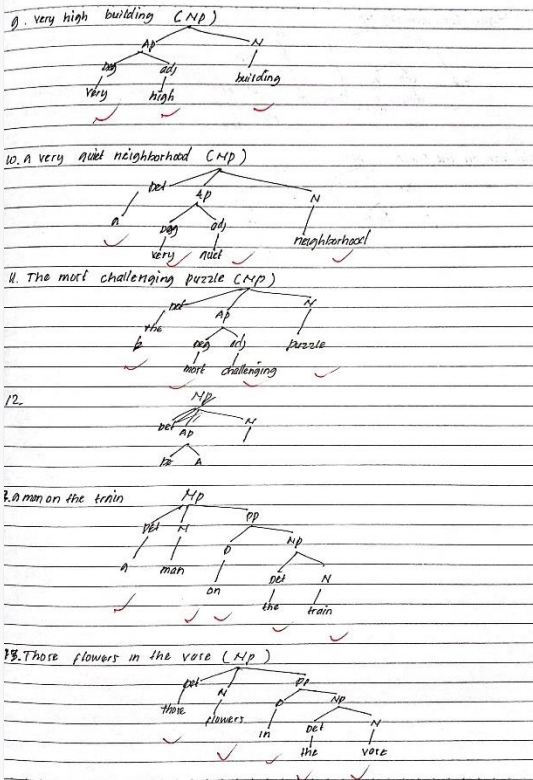 9. very high building (NP)
AP N
Deg adj building
very high
10. A very quiet neighborhood (NP)
Det AP N
a Deg adj neighborhood
very quiet
11. The most challenging puzzle (NP)
Det AP N
the Deg adj puzzle
most challenging
12. NP
Det AP N
A
a man on the train NP
Det N PP
a man P NP
on Det N
the train
Those flowers in the vase (NP)
Det N PP
those flowers P NP
in Det N
the vase